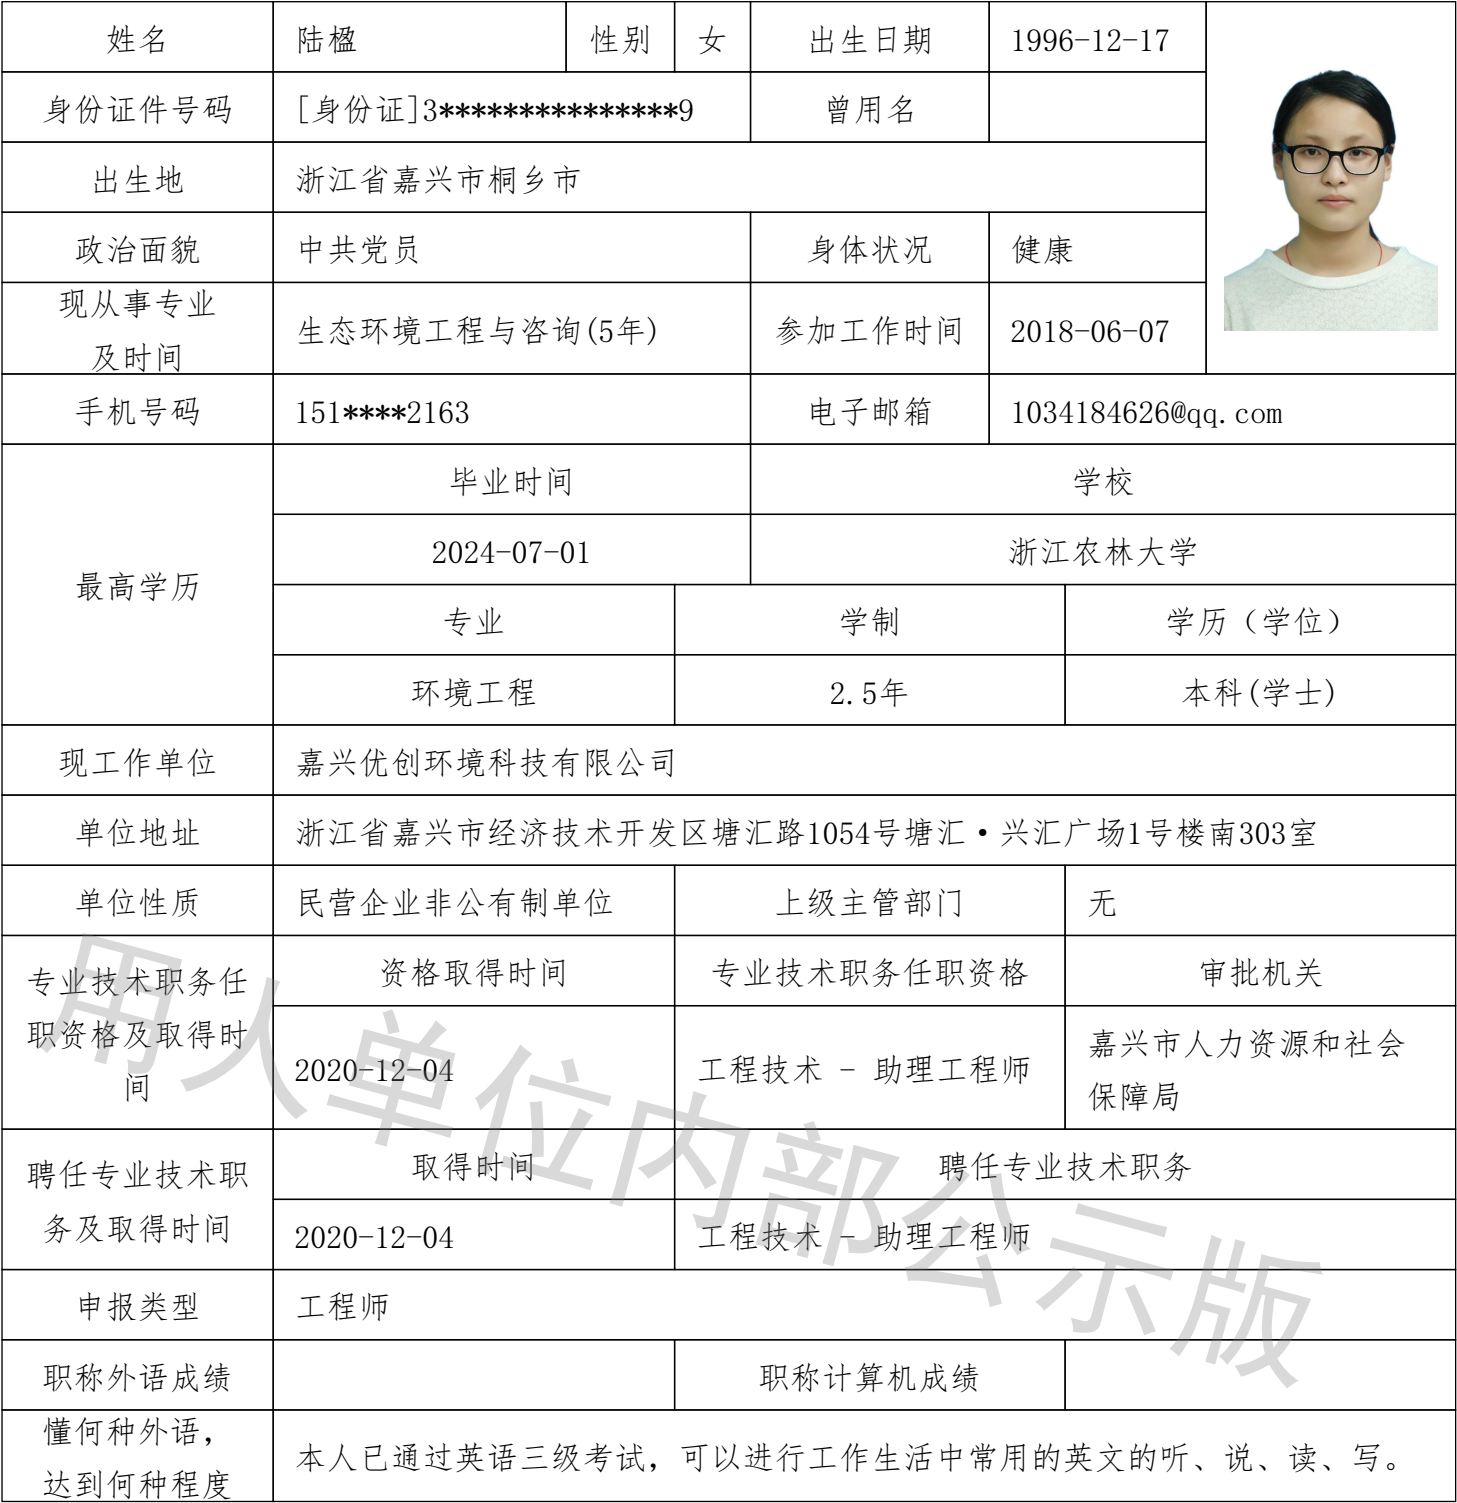 姓名 陆楹 性别 女 出生日期 1996-12-17
身份证件号码 [身份证]3***************9 曾用名
出生地 浙江省嘉兴市桐乡市
政治面貌 中共党员 身体状况 健康
现从事专业
及时间
生态环境工程与咨询(5年) 参加工作时间 2018-06-07
手机号码 151****2163 电子邮箱 1034184626@qq.com
最高学历
毕业时间 学校
2024-07-01 浙江农林大学
专业 学制 学历（学位）
环境工程 2.5年 本科(学士)
现工作单位 嘉兴优创环境科技有限公司
单位地址 浙江省嘉兴市经济技术开发区塘汇路1054号塘汇·兴汇广场1号楼南303室
单位性质 民营企业非公有制单位 上级主管部门 无
专业技术职务任
职资格及取得时
间
资格取得时间 专业技术职务任职资格 审批机关
2020-12-04 工程技术 - 助理工程师 嘉兴市人力资源和社会
保障局
聘任专业技术职
务及取得时间
取得时间 聘任专业技术职务
2020-12-04 工程技术 - 助理工程师
申报类型 工程师
职称外语成绩 职称计算机成绩
懂何种外语，
达到何种程度
本人已通过英语三级考试，可以进行工作生活中常用的英文的听、说、读、写。
用人单位内部公示版